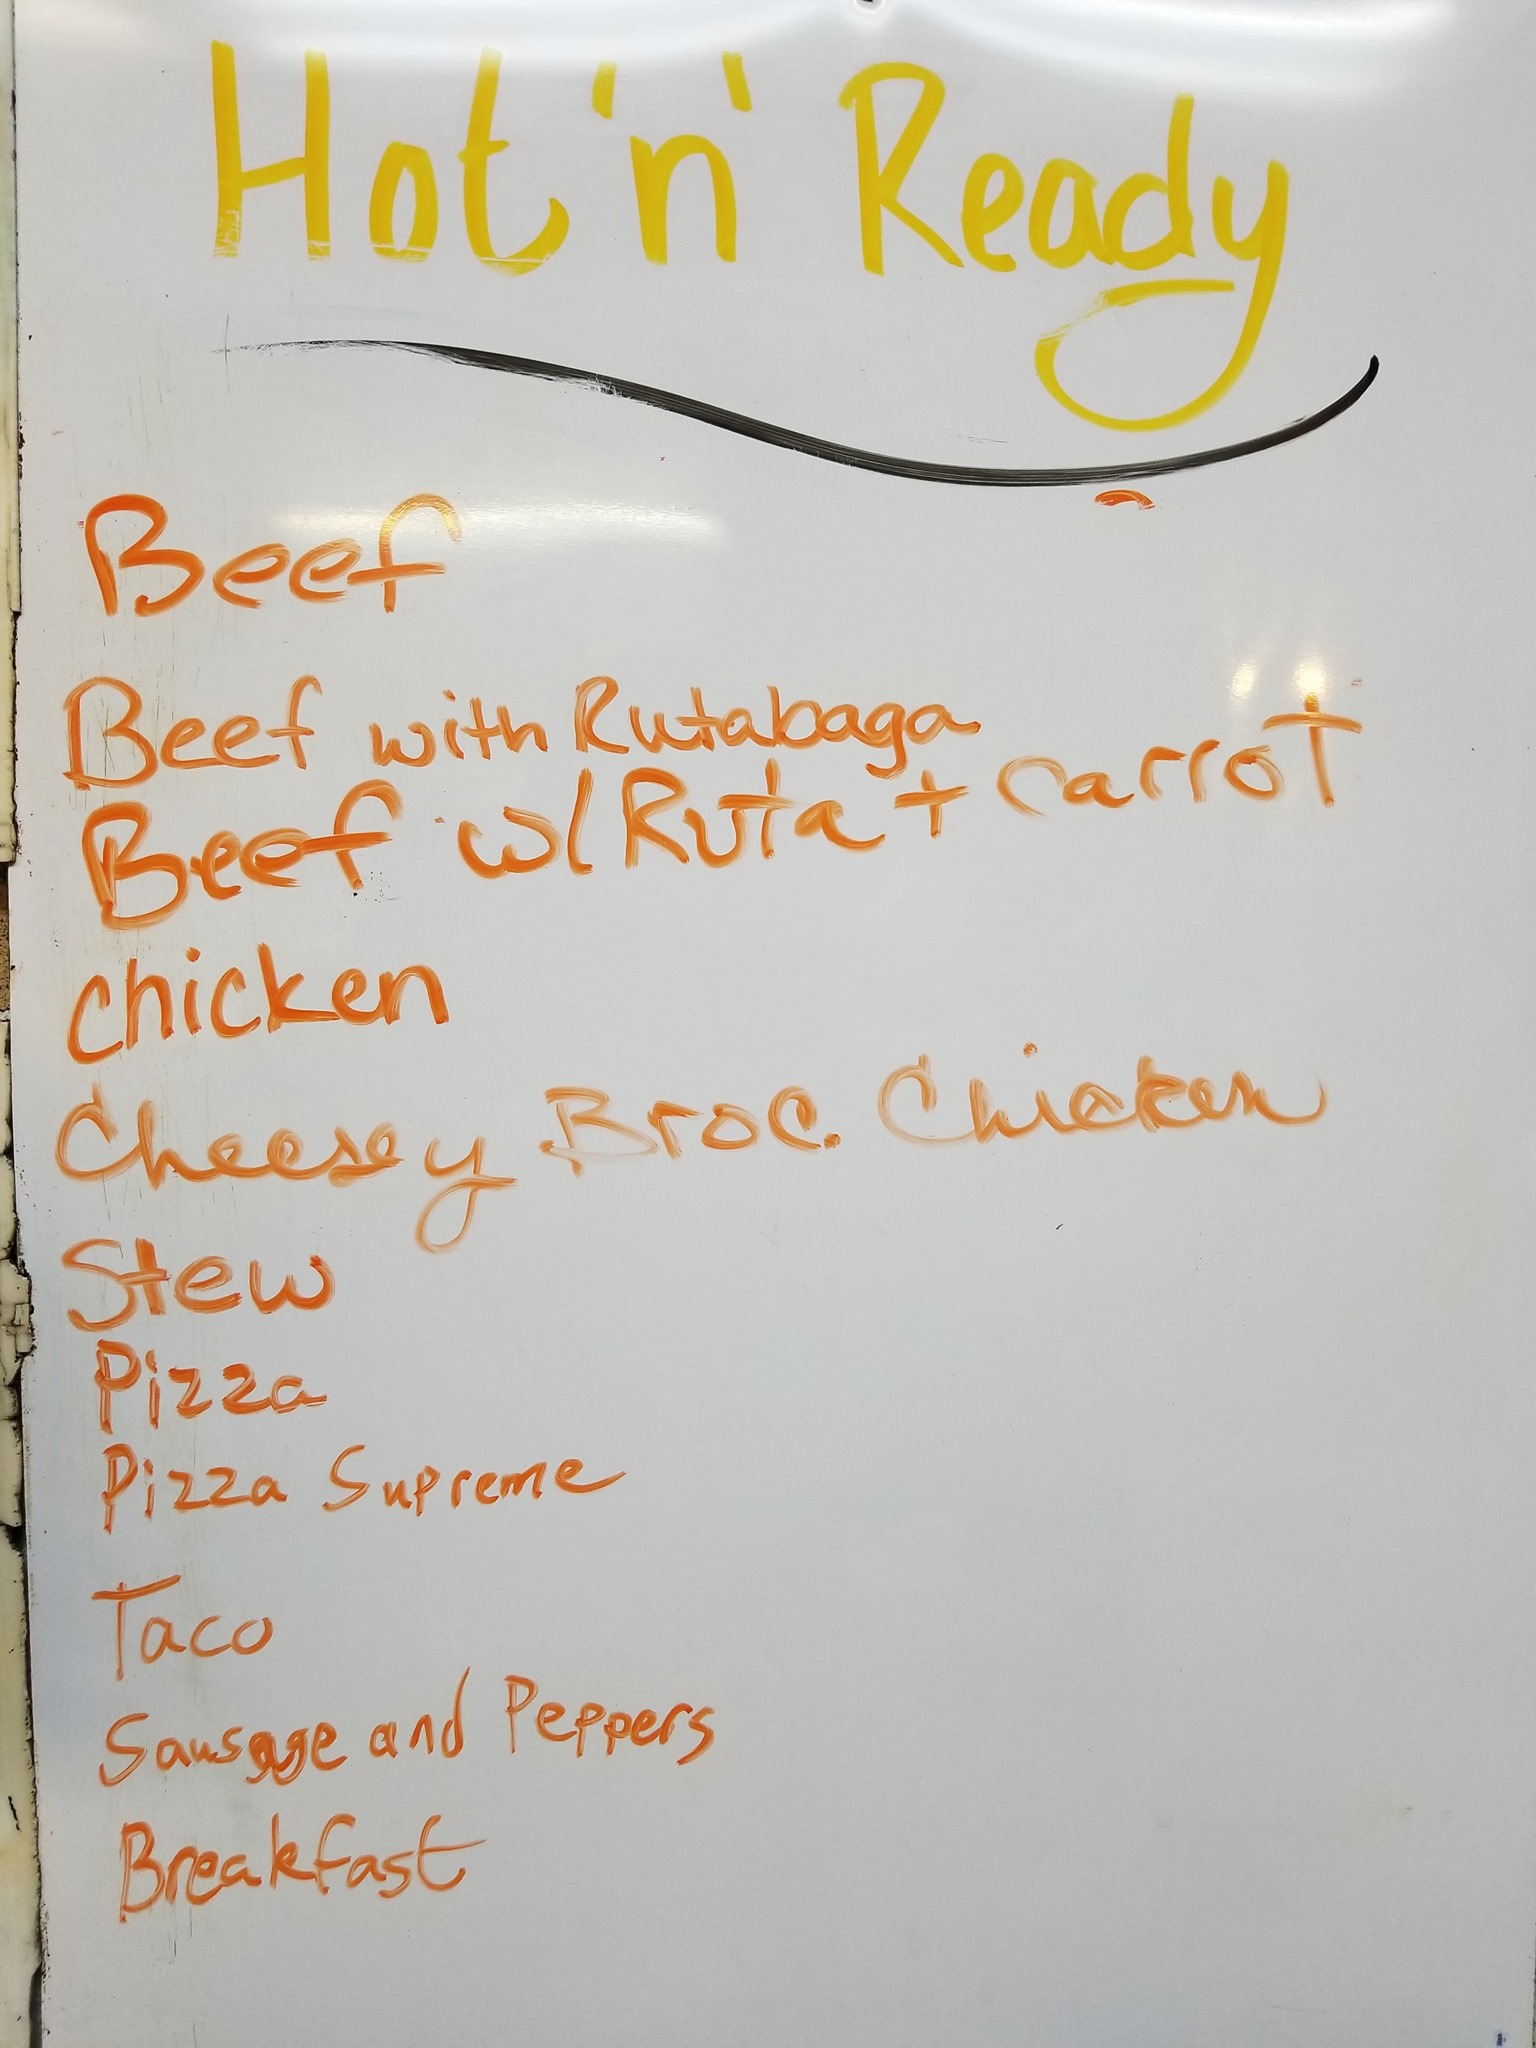 Hot 'n' Ready
Beef
Beef with Rutabaga
Beef w/ Ruta + carrot
chicken
Cheesey Broc. Chicken
Stew
Pizza
Pizza Supreme
Taco
Sausage and Peppers
Breakfast